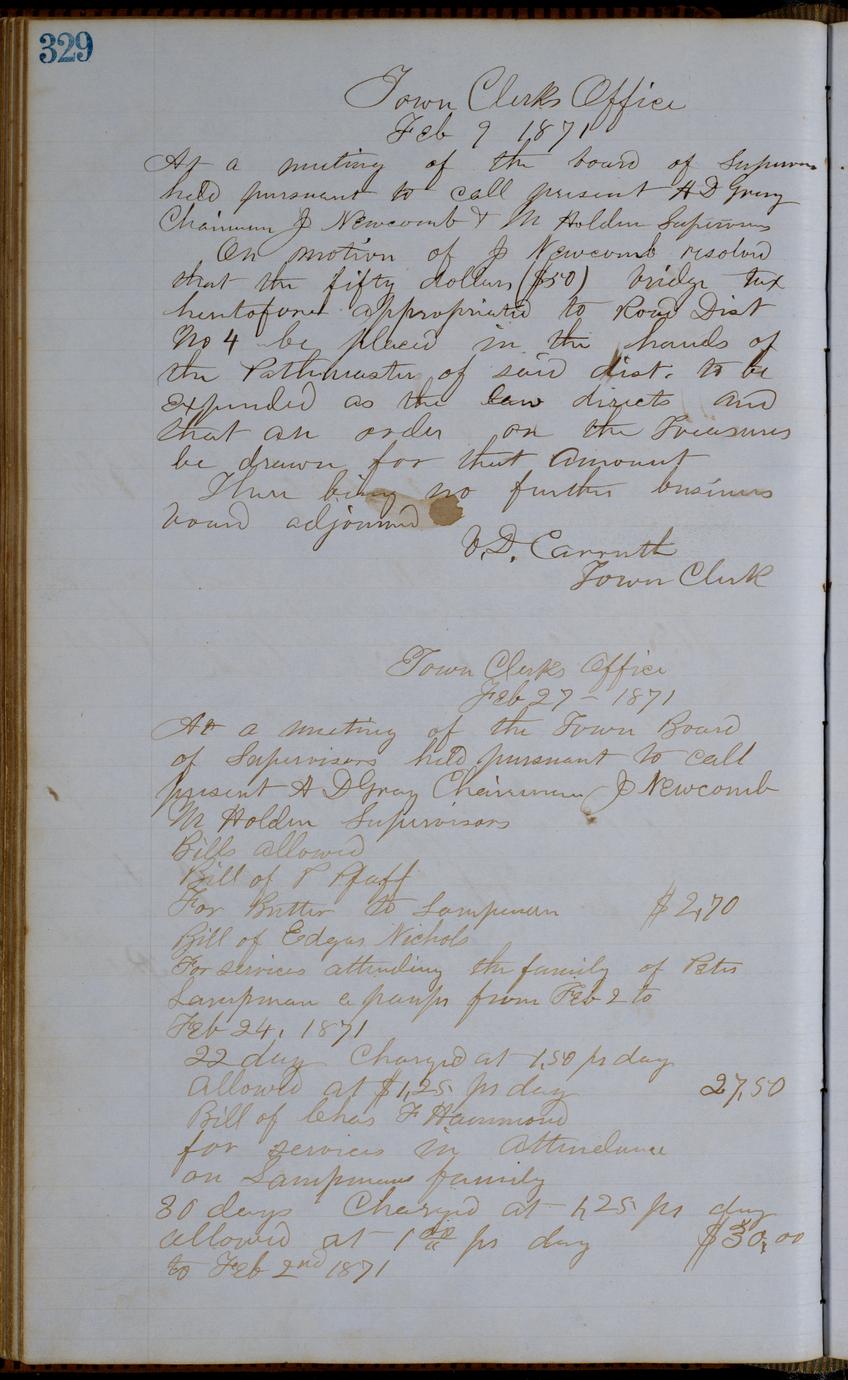 329
Town Clerks Office
Feb 9 1871
At a meeting of the board of Supervisors
held pursuant to call present A D Gray
Chairman J Newcomb & M Holden Supervisors
On motion of J Newcomb resolved
that the fifty dollars ($50) bridge tax
heretofore appropriated to Road Dist
No 4 be placed in the hands of
the Pathmaster of said dist. to be
expended as the law directs and
that an order on the Treasurer
be drawn for that amount
There being no further business
board adjourned
V. D. Carruth
Town Clerk
Town Clerks Office
Feb 27 - 1871
At a meeting of the Town Board
of Supervisors held pursuant to call
present A D Gray Chairman J Newcomb
M Holden Supervisors
Bills allowed
Bill of P Pfaff
For Butter to Lampman $2,70
Bill of Edgar Nichols
For services attending the family of Peter
Lampman a paupr from Feb 2 to
Feb 24, 1871
22 day Charged at 1,50 pr day
allowed at $1,25 pr day 27,50
Bill of Chas F Hammond
for services in attendance
on Lampmans family
30 days Charged at 1,25 pr day
allowed at 1 pr day $30,00
to Feb 2nd 1871